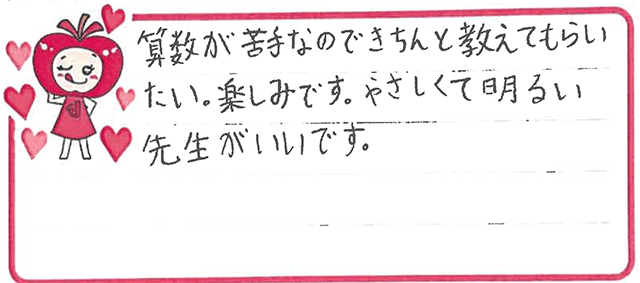 算数が苦手なのできちんと教えてもらい
たい。楽しみです。やさしくて明るい
先生がいいです。